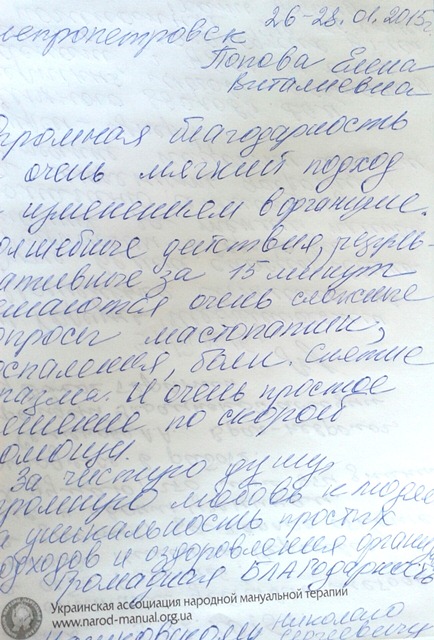 26-28.01.2015г.
непропетровск
Попова Елена
Виталиевна
громная благодарность
очень мягкий подход
изменениям в организме.
олшебные действия, резуль-
ативные за 15 минут
решаются очень сложные
опросы мастопатии,
оспаления, боли. Снятие
пазма. И очень простое
ешение по скорой
омощи.
За чистую душу,
громную любовь к людям
а уникальность простых
одходов и оздоровления органи
Громадная БЛАГОДАРНОСТЬ
Украинская ассоциация народной мануальной терапии
www.narod-manual.org.ua
Николаю